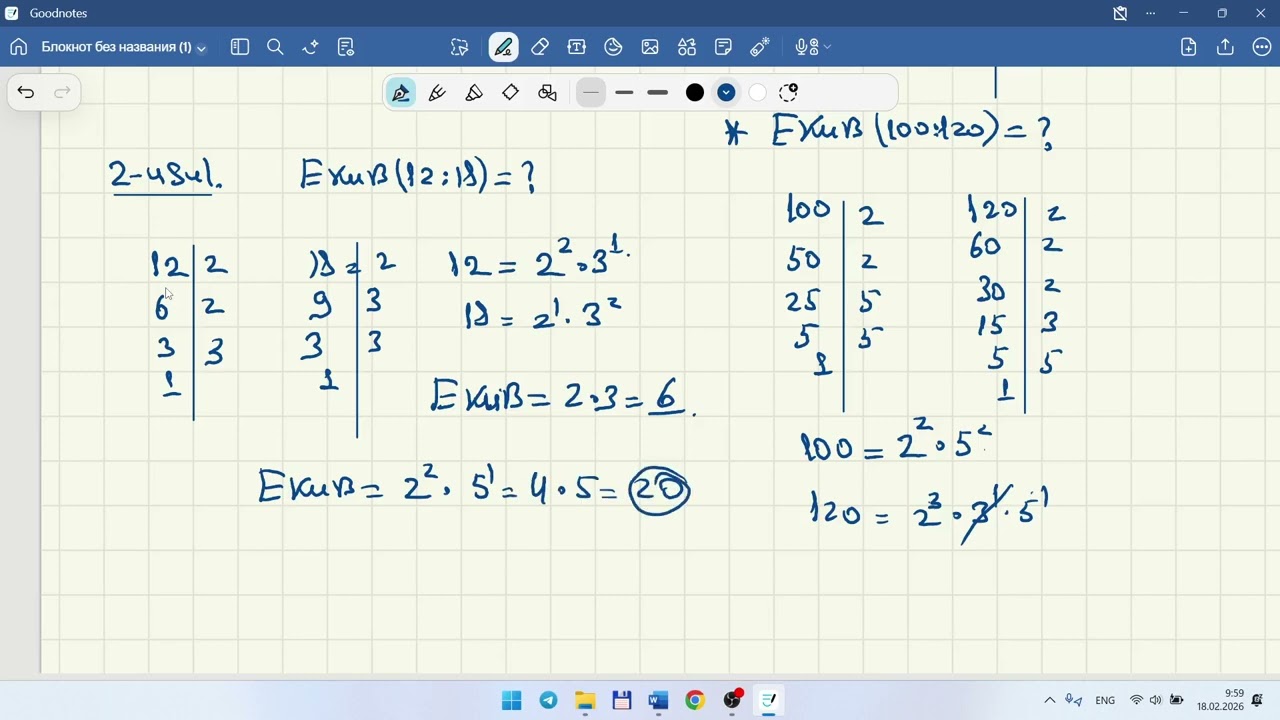 Goodnotes
Блокнот без названия (1)
* EKUB (100:120) = ?
2-usul. EKUB (12:18) = ?
12 | 2
6 | 2
3 | 3
1
18 | 2
9 | 3
3 | 3
1
12 = 2² · 3¹.
18 = 2¹ · 3²
EKUB = 2·3 = 6.
EKUB = 2² · 5¹ = 4 · 5 = 20
100 | 2
50 | 2
25 | 5
5 | 5
1
120 | 2
60 | 2
30 | 2
15 | 3
5 | 5
1
100 = 2² · 5²
120 = 2³ · 3¹ · 5¹
ENG
9:59
18.02.2026